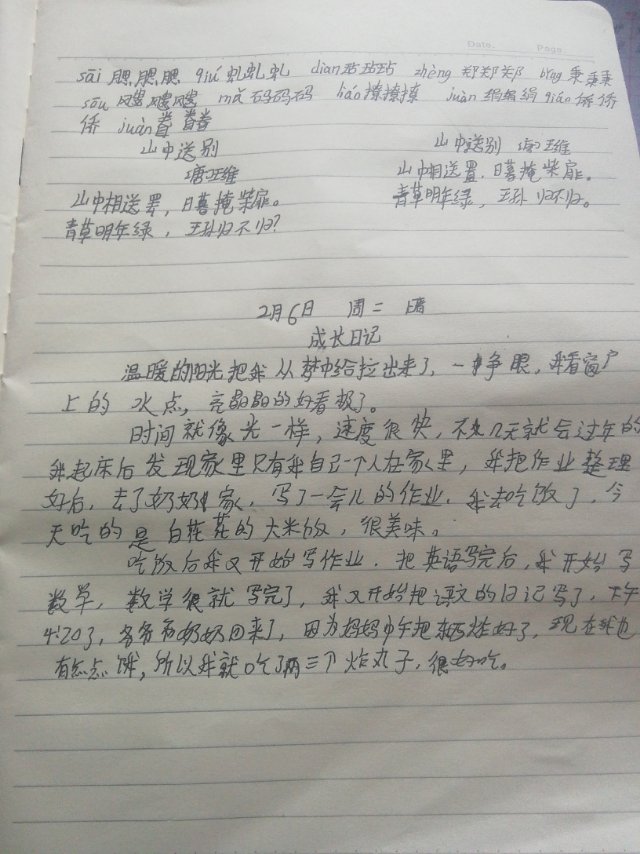 Date. Page.
sāi 腮腮腮 qiú 虬虬虬 diàn 玷玷玷 zhèng 郑郑郑 bǐng 秉秉秉
sōu 飕飕飕 mǎ 码码码 liáo 撩撩撩 juàn 绢绢绢 qiáo 侨侨
侨 juàn 眷眷眷
山中送别
唐 王维
山中相送罢，日暮掩柴扉。
青草明年绿，王孙归不归？
山中送别 唐 王维
山中相送置，日暮掩柴扉。
青草明年绿，王孙归不归。
2月6日 周二 晴
成长日记
温暖的阳光把我从梦中给拉出来了，一睁眼，我看窗户
上的水点，亮晶晶的好看极了。
时间就像光一样，速度很快，不久几天就会过年的
我起床后发现家里只有我自己一个人在家里，我把作业整理
好后，去了奶奶家，写了一会儿的作业，我去吃饭了，今
天吃的是白花花的大米饭，很美味。
吃饭后我又开始写作业，把英语写完后，我开始写
数学，数学很就写完了，我又开始把语文的日记写了，下午
4:20了，爷爷和奶奶回来了，因为妈妈中午把东西炸好了，现在我也
有点点饿，所以我就吃了两三个炸丸子，很好吃。